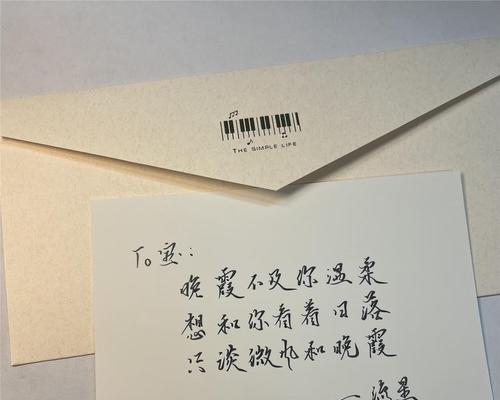 THE SIMPLE LIFE
To
晚霞不及你温柔
想和你看着日落
只谈微风和晚霞